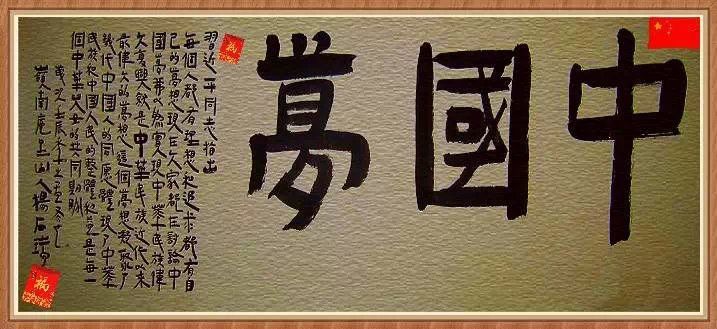 中國夢
習近平同志指出
每個人都有理想和追求都有自
己的夢想現在大家都在討論中
國夢我以為實現中華民族偉
大复興就是中華民族近代以來
偉大的夢想這個夢想凝聚了
幾代中國人的愿體現了中華
民族和中國人民的整體利益是每一
個中華兒女的共同期盼
嶺南虎山人楊石